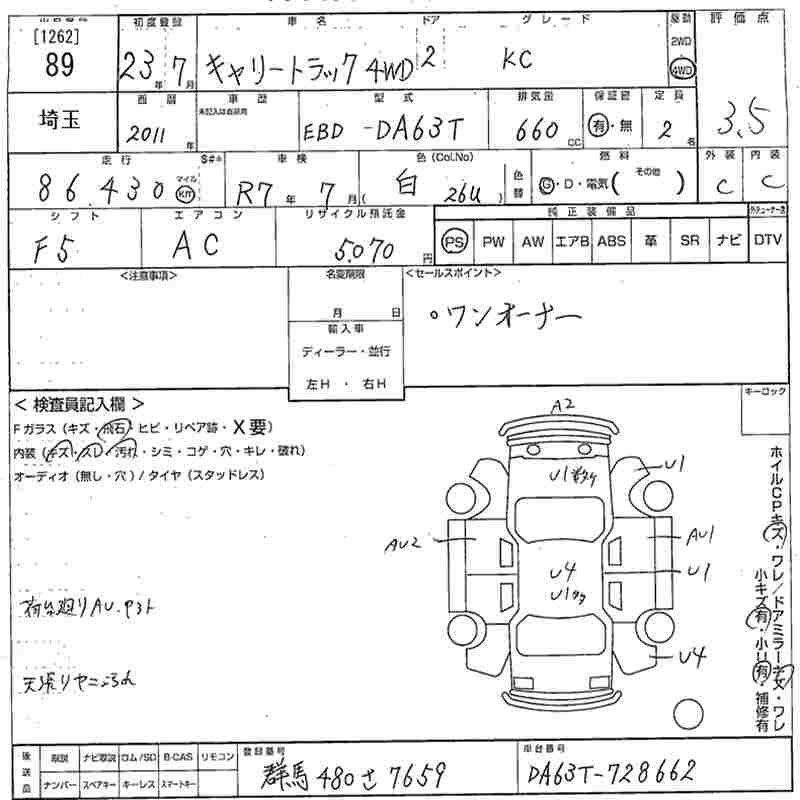 [1262]
89
初度登録 車名 ドア グレード 駆動 評価点
23年 7月 キャリートラック 4WD 2 KC 2WD 4WD
3.5
埼玉
西暦 車歴 型式 排気量 保証書 定員
2011年 未記入は自家用 EBD-DA63T 660cc 有・無 2名
走行 S#* 車検 色(Col.No) 色替 燃料 外装 内装
86,430 マイル km R7年 7月 ( 白 26U ) G・D・電気( その他 ) C C
シフト エアコン リサイクル預託金 純正装備品
F5 AC 5,070円 PS PW AW エアB ABS 革 SR ナビ DTV
<注意事項> 名変期限 <セールスポイント>
月 日 ・ワンオーナー
輸入車
ディーラー・並行
左H ・ 右H
< 検査員記入欄 > キーロック
Fガラス (キズ・飛石・ヒビ・リペア跡・X要)
内装 (キズ・スレ・汚れ・シミ・コゲ・穴・キレ・破れ)
オーディオ (無し・穴) / タイヤ (スタッドレス)
A2
U1
U1
AU2 AU1
U4 U1
U1
U4
荷台廻りAU.
天張り
ホイルCPキズ・ワレ/ドアミラーキズ・ワレ
小キズ有・小U有・補修有
後送品 取説 ナビ取説 ロム/SD B-CAS リモコン 登録番号 車台番号
ナンバー スペアキー キーレス スマートキー 群馬 480 さ 7659 DA63T-728662